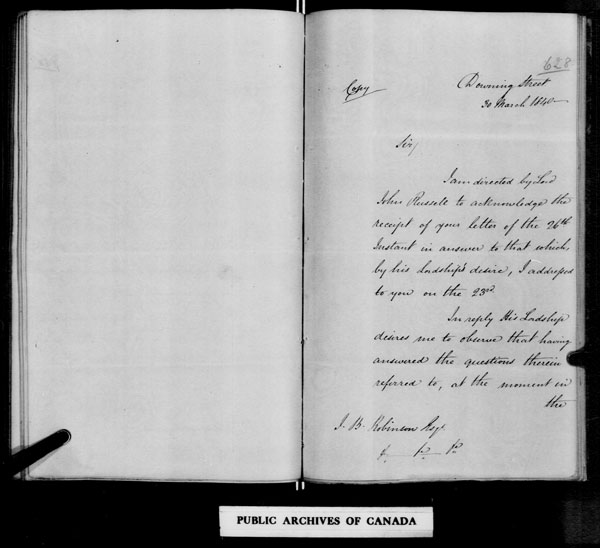 628
Copy
Downing Street
30 March 1840
Sir,
I am directed by Lord
John Russell to acknowledge the
receipt of your letter of the 26th
Instant in answer to that which,
by his Lordship's desire, I addressed
to you on the 23rd
In reply His Lordship
desires me to observe that having
answered the questions therein
referred to, at the moment in
the
J. B. Robinson Esqr
PUBLIC ARCHIVES OF CANADA